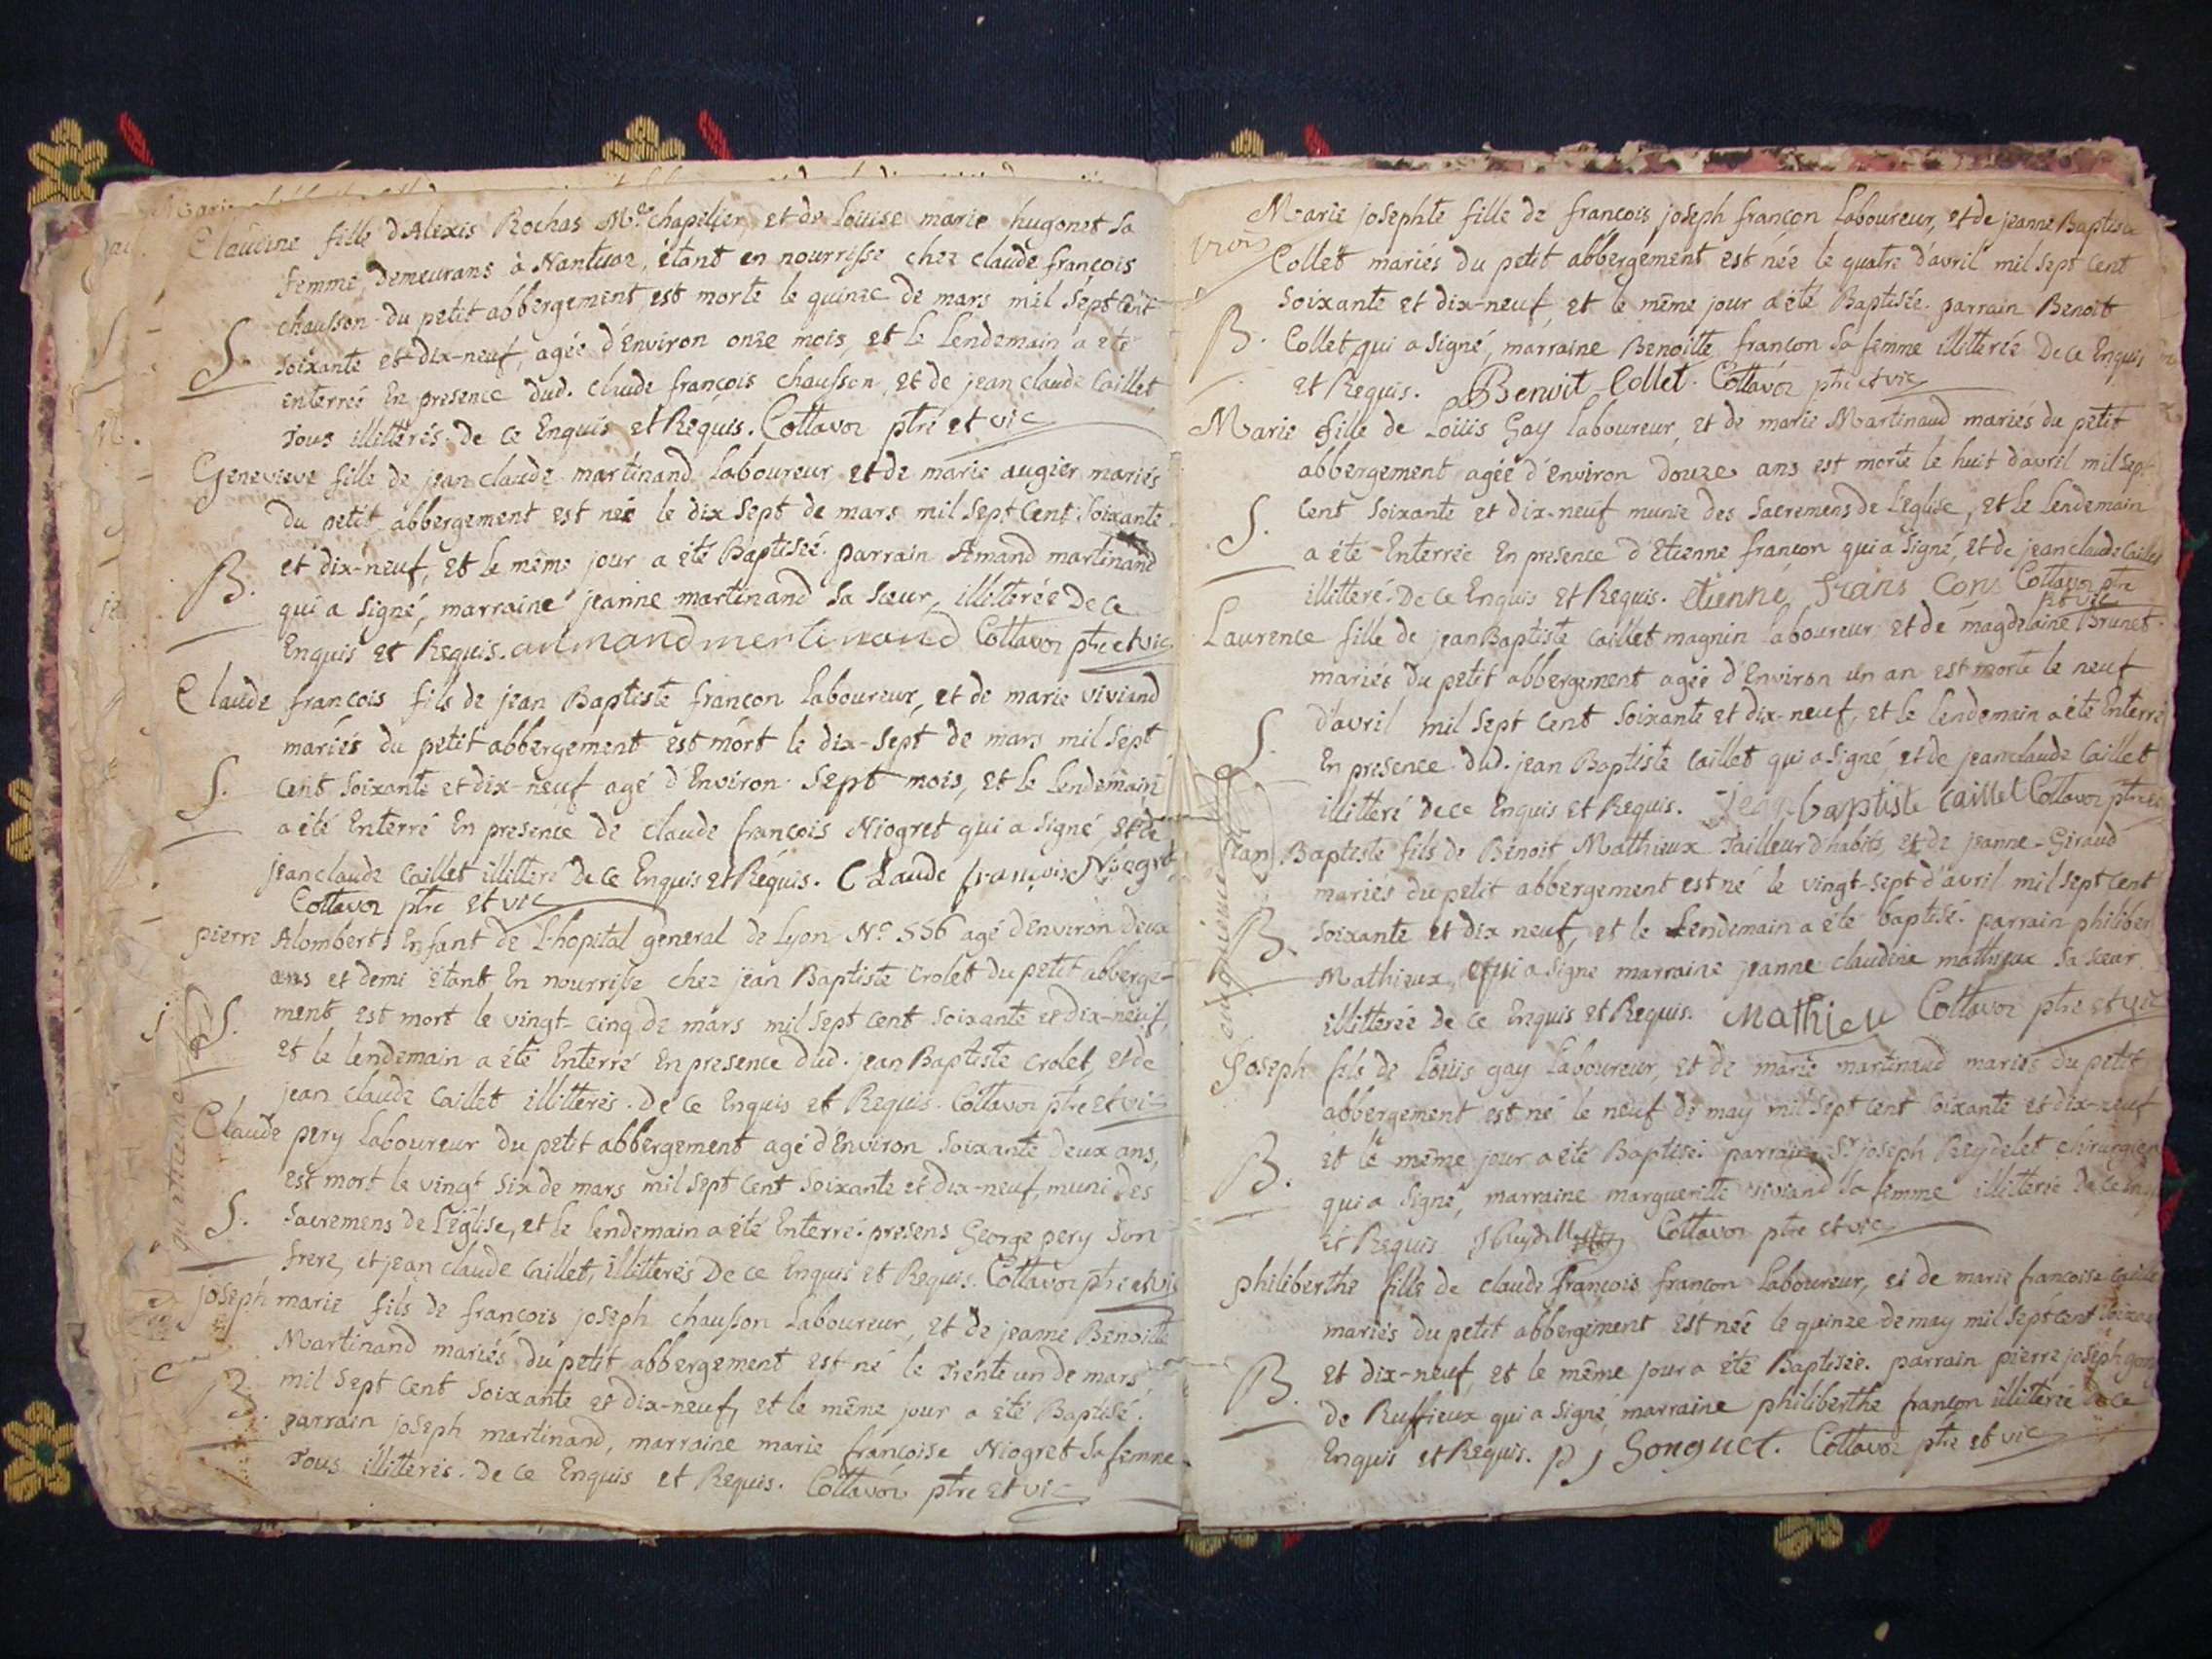 Claudine fille d'Alexis Rochas Me chapelier et de Louise marie hugonet sa
femme, demeurans à Nantua, étant en nourrisse chez claude françois
chausson du petit abbergement est morte le quinze de mars mil sept cent
S. soixante et dix-neuf, agée d'Environ onze mois, et le Lendemain a eté
enterreé En presence dud. claude françois chausson, et de jean claude Caillet
Tous illitterés. de ce Enquis et Requis. Cottavoz ptre et vic
Genevieve fille de jean claude martinand Laboureur et de marie augier mariés
du petit abbergement est neé le dix sept de mars mil sept Cent Soixante
B. et dix-neuf, et le même jour a été Baptiseé. parrain Amand martinand
qui a signé, marraine jeanne martinand sa sœur, illiterée De ce
Enquis et Requis. aumand mertinand Cottavoz ptre et vic
Claude françois fils de jean Baptiste françon Laboureur, et de marie viviand
mariés du petit abbergement est mort le dix-sept de mars mil sept
S. Cent soixante et dix-neuf agé d'Environ Sept mois, et le Lendemain
a été Enterré En presence de claude françois Niogret qui a signé et de
jean claude Caillet illitteré De ce Enquis et Requis. CLaude françoise Niogret
Cottavoz ptre et vic
pierre Alomberts Enfant de L'hopital general de Lyon No 556 agé d'Environ deux
ans et demi étant En nourrisse chez jean Baptiste Crolet du petit abberge-
S. ment est mort le vingt-cinq de mars mil sept cent soixante et dix-neuf,
et le lendemain a été Enterré En presence dud. jean Baptiste Crolet, et de
jean claude Caillet illitterés. De ce Enquis et Requis. Cottavoz ptre et vic
Claude pery Laboureur du petit abbergement agé d'Environ soixante deux ans,
est mort le vingt six de mars mil sept cent soixante et dix-neuf, muni des
S. sacremens de L'église, et le lendemain a été Enterré. presens George pery son
frere, et jean claude Caillet, illitterés De ce Enquis et Requis. Cottavoz ptre et vic
joseph marie fils de françois joseph chausson Laboureur, et de jeanne Benoitte
Martinand mariés du petit abbergement est né le Trente un de mars
B. mil sept cent soixante et dix-neuf, et le même jour a été Baptisé.
parrain joseph martinand, marraine marie françoise Niogret sa femme
Tous illitterés. de ce Enquis et Requis. Cottavoz ptre et vic
Marie josephte fille de françois joseph françon Laboureur, et de jeanne Baptiste
Collet mariés du petit abbergement est née le quatre d'avril mil sept cent
soixante et dix-neuf, et le même jour a été Baptisée. parrain Benoit
B. Collet qui a signé, marraine Benoitte françon sa femme illitterée De ce Enquis
et Requis. Benoit Collet. Cottavoz ptre et vic
Marie fille de Loüis Gay laboureur, et de marie Martinaud mariés du petit
abbergement agée d'environ douze ans est morte le huit d'avril mil sept
S. Cent soixante et dix-neuf munie des sacremens de L'eglise, et le lendemain
a été Enterrée En presence d'Etienne françon qui a signé, et de jean claude Caillet
illitteré. De ce Enquis et Requis. etienne frans Con Cottavoz ptre
et vic
Laurence fille de jean Baptiste Caillet magnin laboureur, et de magdelaine Brunet
mariés du petit abbergement agée d'Environ un an est morte le neuf
S. d'avril mil sept cent soixante et dix-neuf, et le lendemain a été Enterré
En presence dud. jean Baptiste Caillet qui a signé, et de jean claude Caillet
illitteré de ce Enquis et Requis. jean baptiste Caillet Cottavoz ptre et
jean Baptiste fils de Benoit Mathieux Tailleur d'habits, et de jeanne Giraud
mariés du petit abbergement est né le vingt-sept d'avril mil sept cent
B. soixante et dix neuf, et le Lendemain a été baptisé. parrain philiber
Mathieux, qui a signé marraine jeanne claudine mathieux sa sœur
illitterée de ce Enquis et Requis. Mathieu Cottavoz ptre et vic
Joseph fils de Loüis gay Laboureur, et de marie martinaud mariés du petit
abbergement est né le neuf de may mil sept cent soixante et dix-neuf
B. et le même jour a été Baptisé. parrain Sr joseph Reydelet chirurgien
qui a signé, marraine margueritte viviand sa femme illitterée de ce Enq
et Requis. Cottavoz ptre et vic
philiberthe fille de claude François françon Laboureur, et de marie françoise Caille
mariés du petit abbergement est née le quinze de may mil sept cent soixan
B. et dix-neuf, et le même jour a été Baptisée. parrain pierre joseph gong
de Ruffieux qui a signé marraine philiberthe françon illitterée De ce
Enquis et Requis. p j Gonguet. Cottavoz ptre et vic